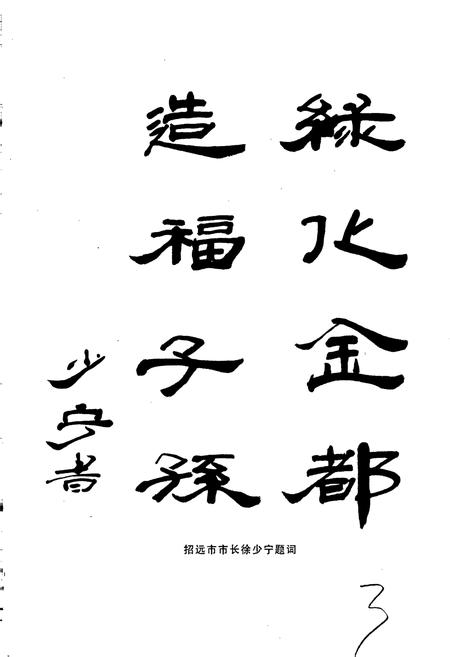 綠化金都
造福子孫
少宁书
招远市市长徐少宁题词
3